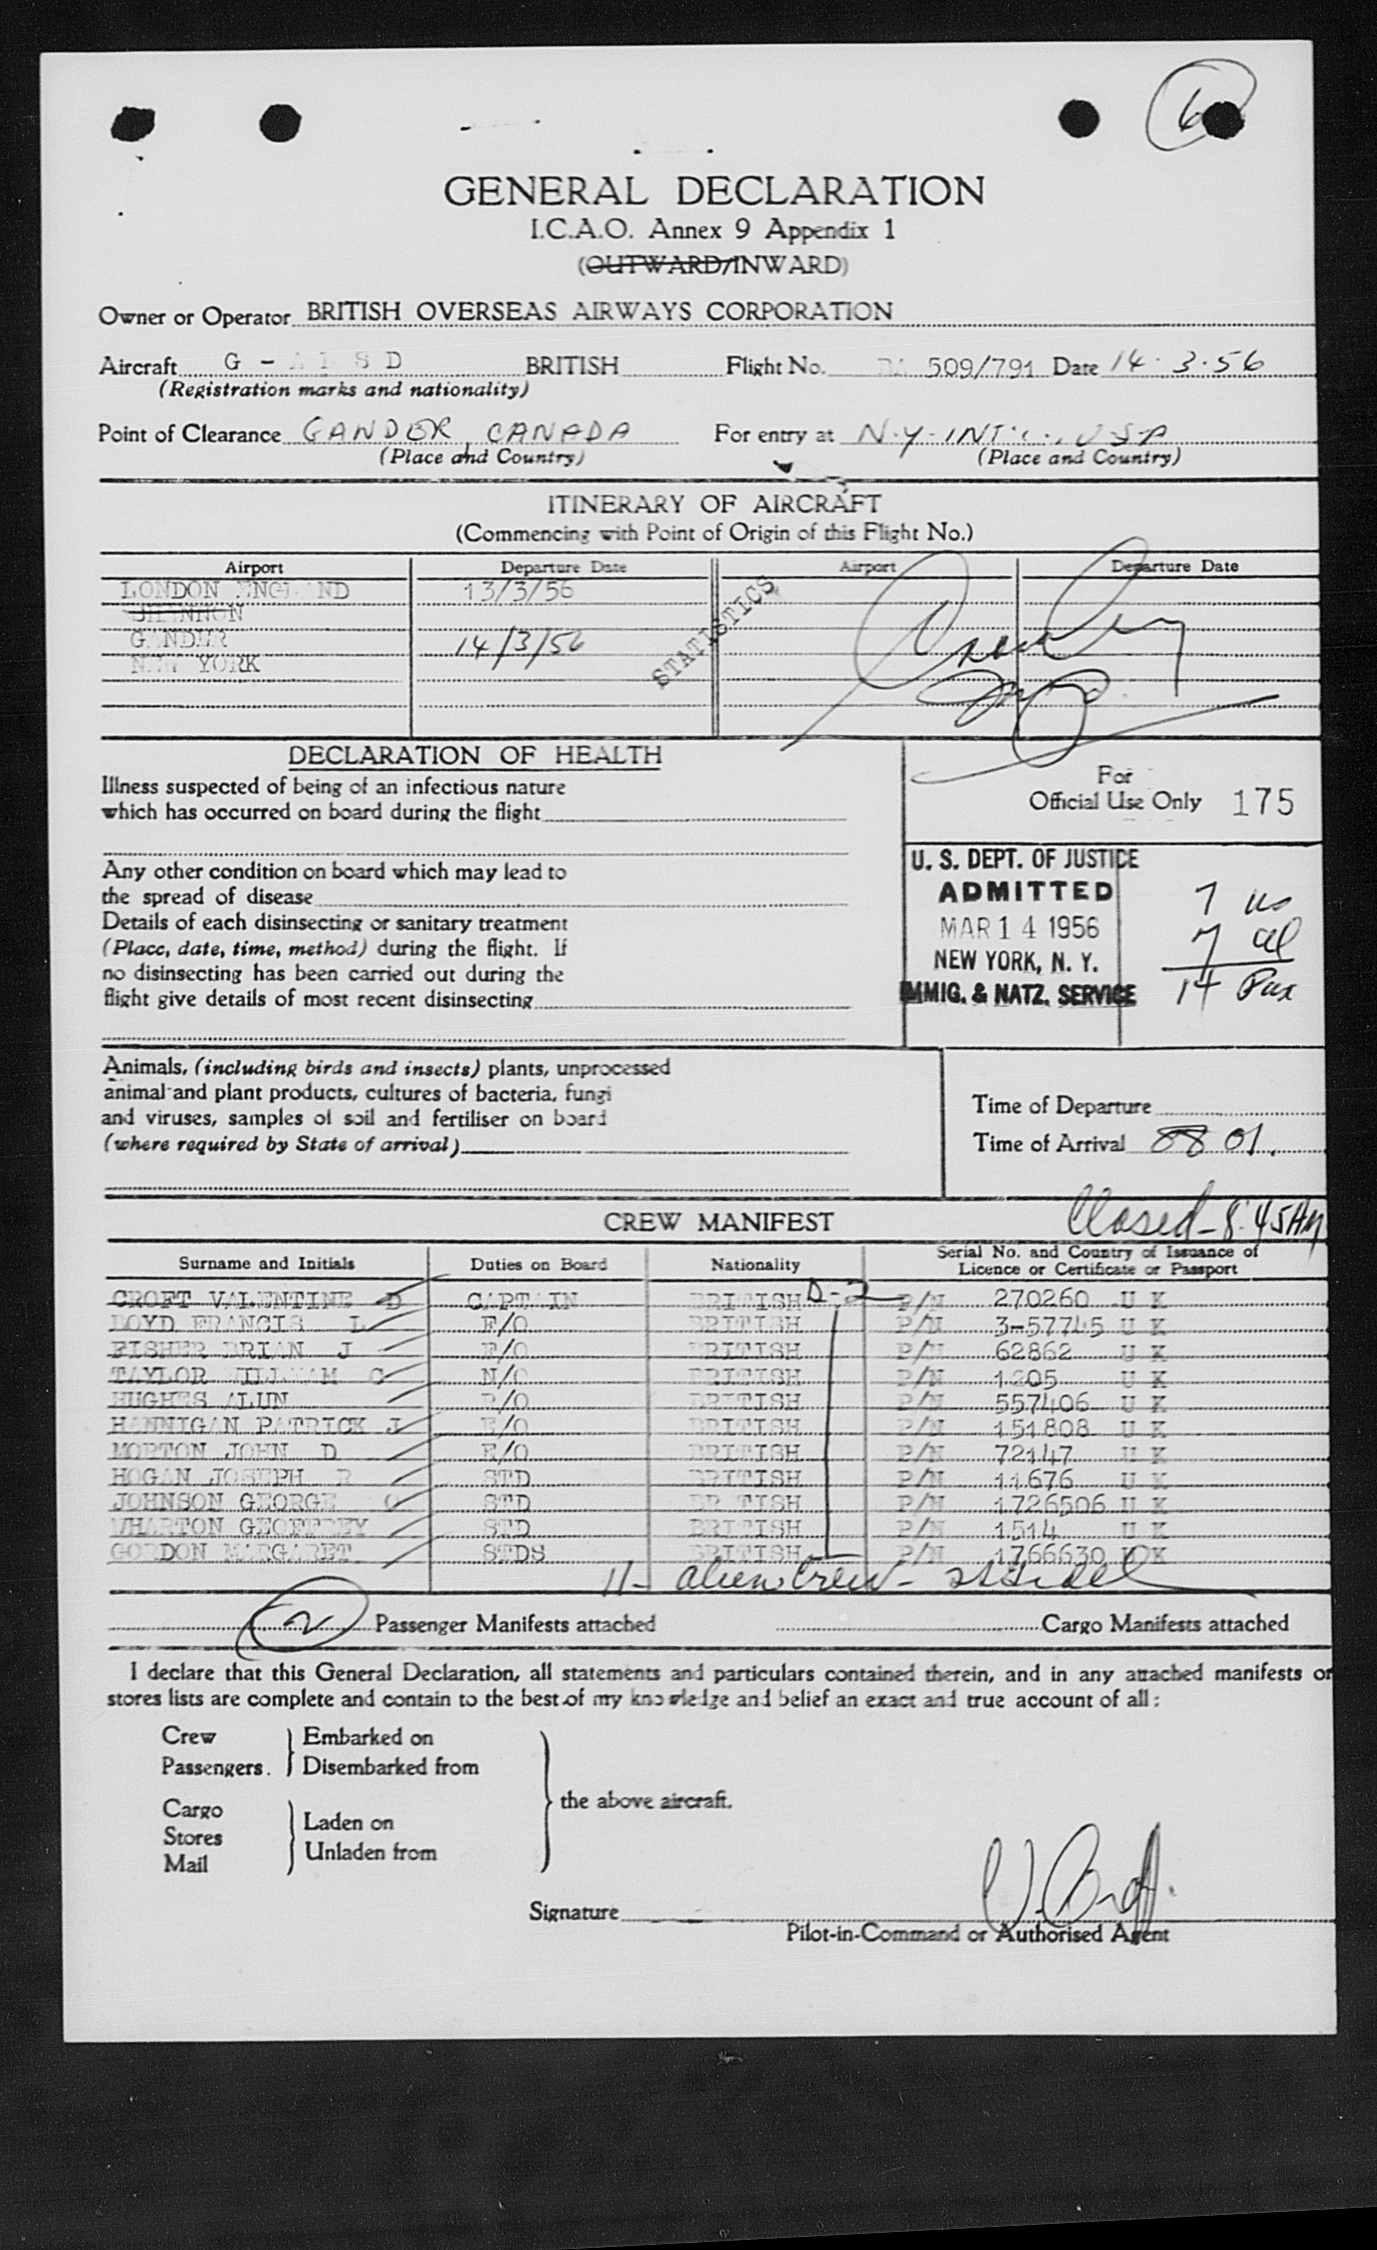 6
GENERAL DECLARATION
I.C.A.O. Annex 9 Appendix 1
(OUTWARD/INWARD)
Owner or Operator BRITISH OVERSEAS AIRWAYS CORPORATION
Aircraft G - A L S D BRITISH Flight No. BA 509/791 Date 14.3.56
(Registration marks and nationality)
Point of Clearance GANDER, CANADA For entry at N.Y. INT'L., USA
(Place and Country) (Place and Country)
ITINERARY OF AIRCRAFT
(Commencing with Point of Origin of this Flight No.)
Airport Departure Date Airport Departure Date
LONDON ENGLAND 13/3/56
SHANNON
GANDER 14/3/56
NEW YORK
STATISTICS
DECLARATION OF HEALTH
Illness suspected of being of an infectious nature
which has occurred on board during the flight
Any other condition on board which may lead to
the spread of disease
Details of each disinsecting or sanitary treatment
(Place, date, time, method) during the flight. If
no disinsecting has been carried out during the
flight give details of most recent disinsecting
For
Official Use Only 175
U. S. DEPT. OF JUSTICE
ADMITTED
MAR 14 1956
NEW YORK, N. Y.
IMMIG. & NATZ. SERVICE
7 us
7 al
14 Pax
Animals, (including birds and insects) plants, unprocessed
animal and plant products, cultures of bacteria, fungi
and viruses, samples of soil and fertiliser on board
(where required by State of arrival)
Time of Departure
Time of Arrival 08 01.
Closed - 8:45AM
CREW MANIFEST
Surname and Initials Duties on Board Nationality Serial No. and Country of Issuance of
Licence or Certificate or Passport
CROFT VALENTINE D CAPTAIN BRITISH D-2 P/N 270260 U K
BOYD FRANCIS L F/O BRITISH P/N 3-57745 U K
FISHER BRIAN J F/O BRITISH P/N 62862 U K
TAYLOR WILLIAM C N/O BRITISH P/N 1205 U K
HUGHES ALUN R/O BRITISH P/N 557406 U K
HANNIGAN PATRICK J E/O BRITISH P/N 151808 U K
MORTON JOHN D E/O BRITISH P/N 72147 U K
HOGAN JOSEPH R STD BRITISH P/N 11676 U K
JOHNSON GEORGE C STD BRITISH P/N 1726506 U K
WHARTON GEOFFREY STD BRITISH P/N 1514 U K
GORDON MARGARET STDS BRITISH P/N 1766630 U K
11 - alien Crew -
2 Passenger Manifests attached Cargo Manifests attached
I declare that this General Declaration, all statements and particulars contained therein, and in any attached manifests or
stores lists are complete and contain to the best of my knowledge and belief an exact and true account of all:
Crew
Passengers.
Embarked on
Disembarked from
Cargo
Stores
Mail
Laden on
Unladen from
the above aircraft.
Signature V. Croft.
Pilot-in-Command or Authorised Agent